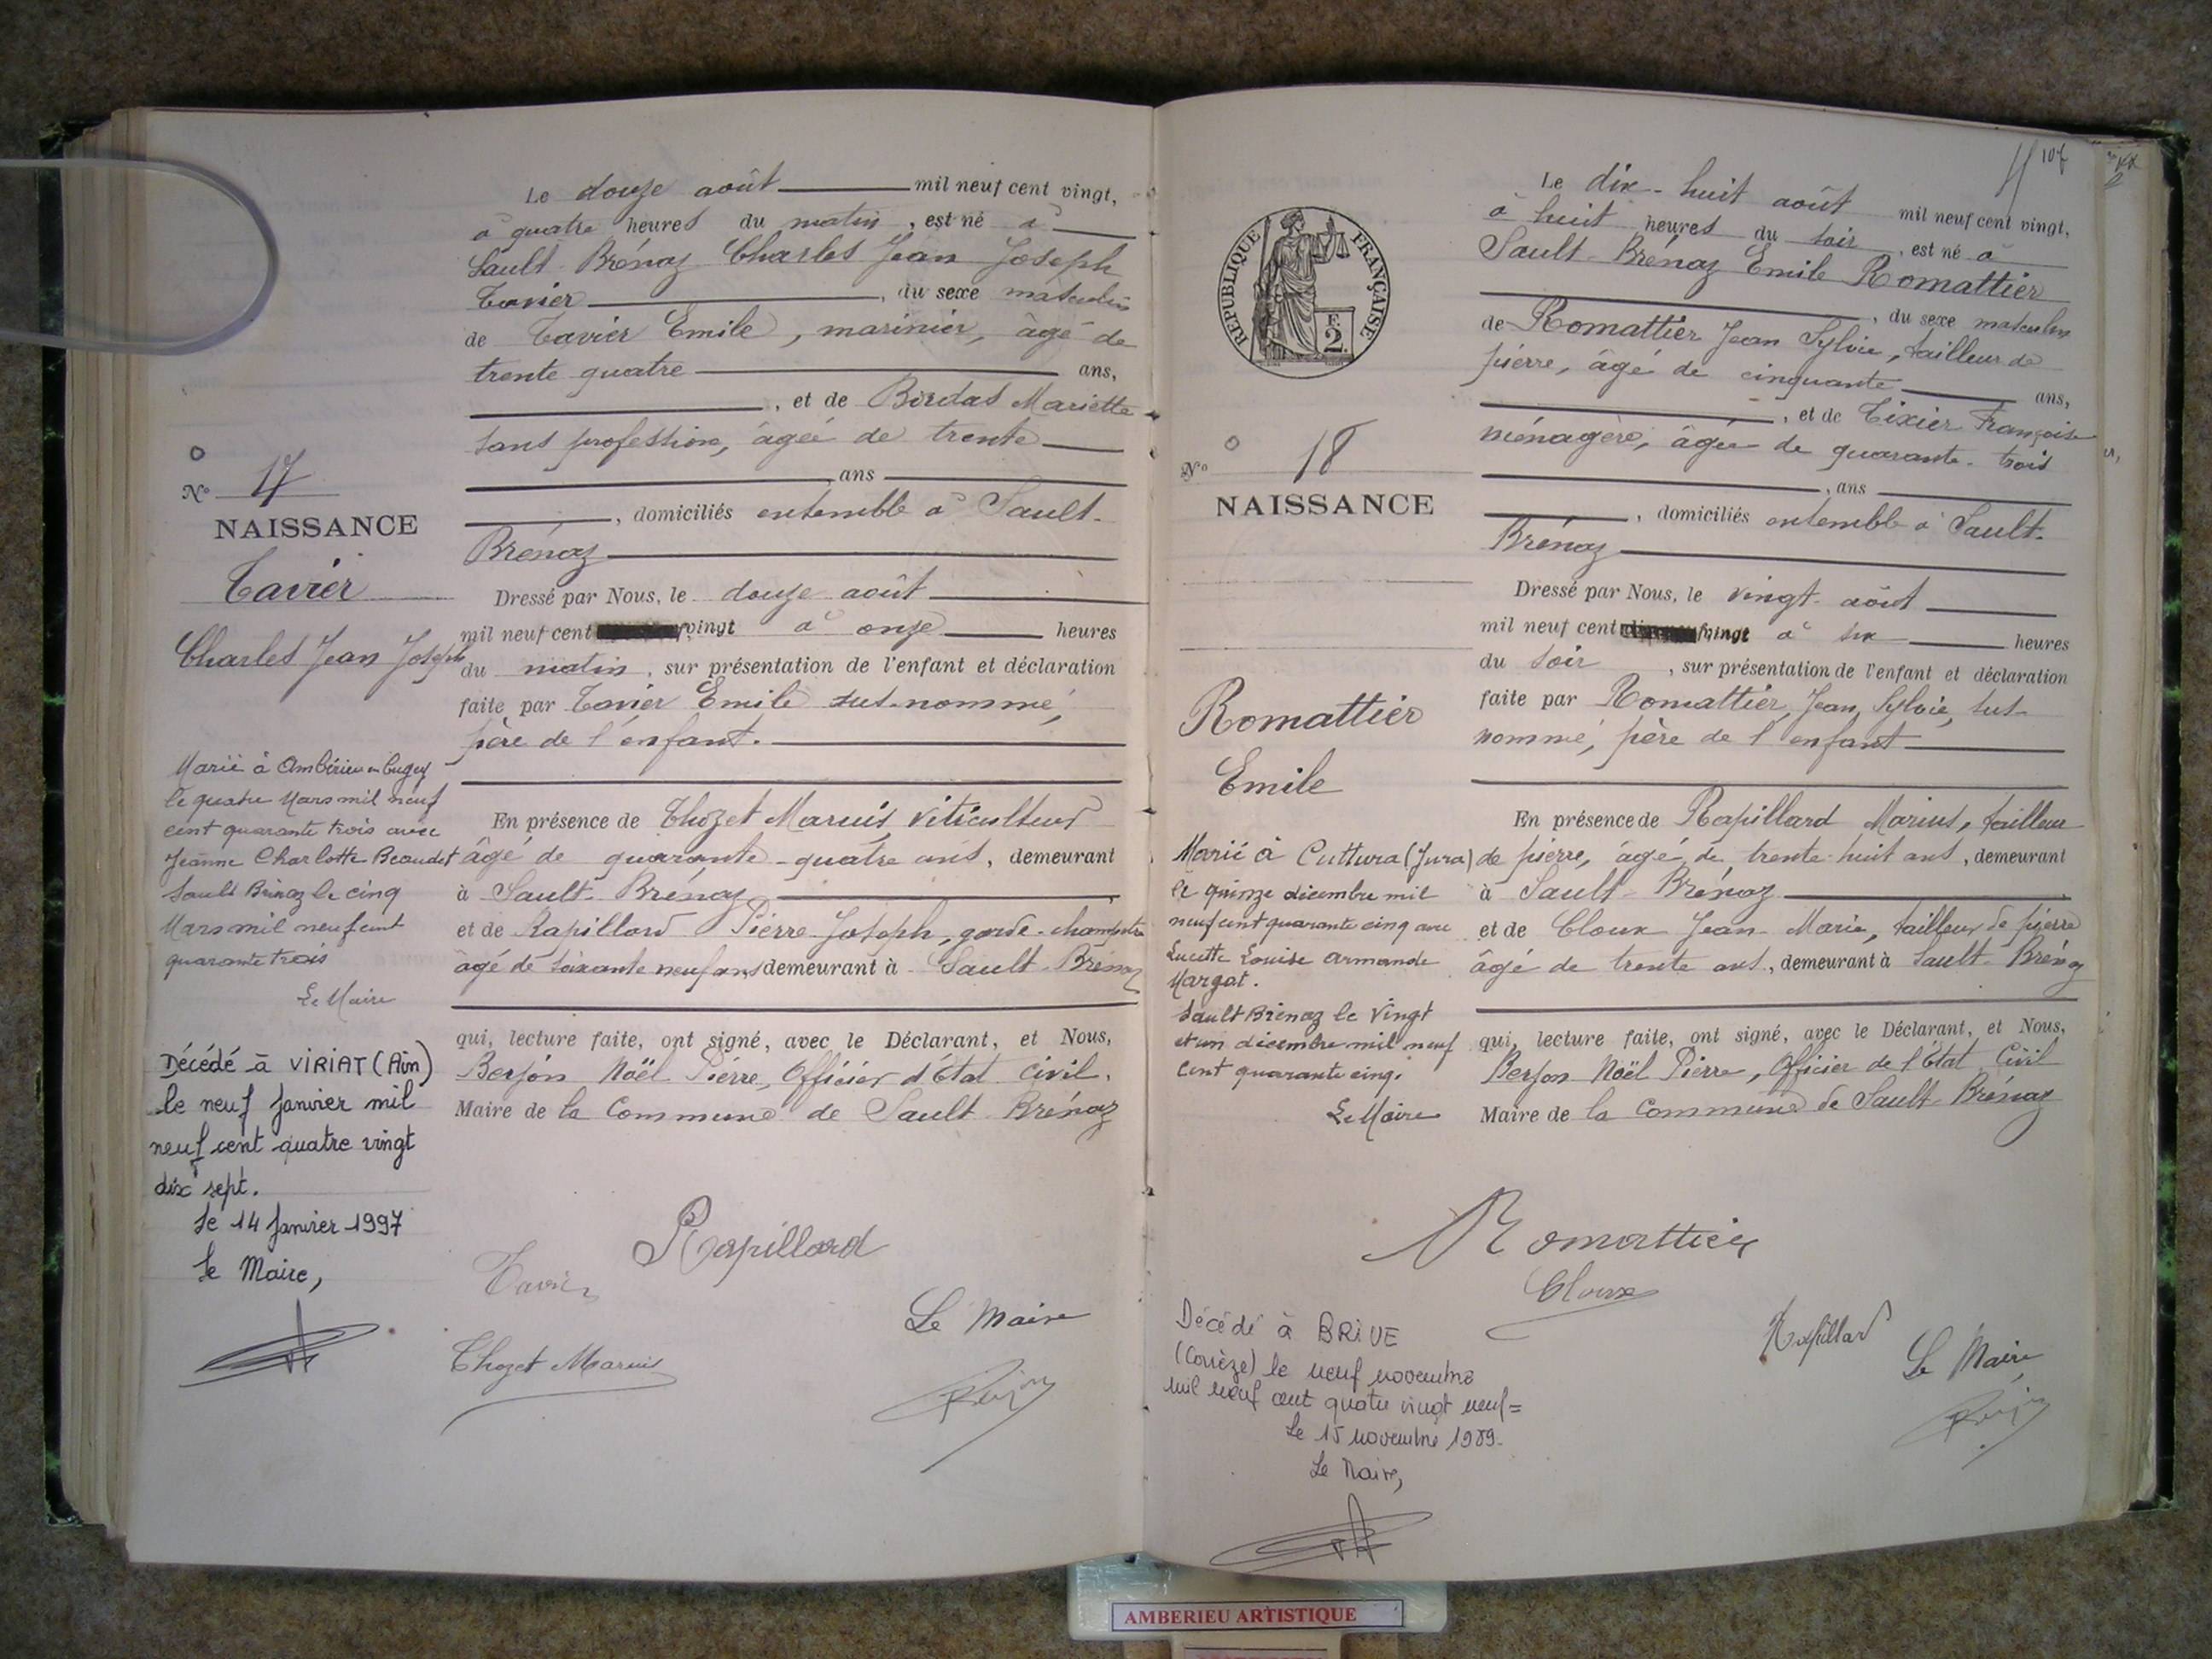 Le douze août mil neuf cent vingt,
à quatre heures du matin, est né à
Sault-Brénaz Charles Jean Joseph
Tavier, du sexe masculin
de Tavier Emile, marinier, âgé de
trente quatre ans,
, et de Mariette
sans profession, âgée de trente
ans
, domiciliés ensemble à Sault-
Brénaz
Dressé par Nous, le douze août
mil neuf cent vingt à onze heures
du matin, sur présentation de l'enfant et déclaration
faite par Tavier Emile sus-nommé,
père de l'enfant.
En présence de Thozet Marius, viticulteur
âgé de quarante-quatre ans, demeurant
à Sault-Brénaz
et de Rapillard Pierre-Joseph, garde-champêtre
âgé de soixante neuf ans demeurant à Sault-Brénaz
qui, lecture faite, ont signé, avec le Déclarant, et Nous,
Berjon Noël Pierre, Officier d'État Civil,
Maire de la Commune de Sault-Brénaz
Rapillard
Tavier
Le Maire
Thozet Marius
Berjon
No 17
NAISSANCE
Tavier
Charles Jean Joseph
Marié à Ambérieu en Bugey
le quatre Mars mil neuf
cent quarante trois avec
Jeanne Charlotte Beaudet
Sault Brénaz le cinq
Mars mil neuf cent
quarante trois
Le Maire
Décédé à VIRIAT (Ain)
le neuf Janvier mil
neuf cent quatre vingt
dix sept.
Le 14 Janvier 1997
Le Maire,
107
Le dix-huit août mil neuf cent vingt,
à huit heures du soir, est né à
Sault-Brénaz Emile Romattier
, du sexe masculin
de Romattier Jean Sylvie, tailleur de
pierre, âgé de cinquante ans,
, et de Tixier Françoise
ménagère, âgée de quarante-trois
, ans
, domiciliés ensemble à Sault-
Brénaz
Dressé par Nous, le vingt août
mil neuf cent vingt à six heures
du soir, sur présentation de l'enfant et déclaration
faite par Romattier Jean Sylvie, sus-
nommé, père de l'enfant
En présence de Rapillard Marius, tailleur
de pierre, âgé de trente-huit ans, demeurant
à Sault-Brénaz
et de Cloux Jean-Marie, tailleur de pierre
âgé de trente ans, demeurant à Sault-Brénaz
qui, lecture faite, ont signé, avec le Déclarant, et Nous,
Berjon Noël Pierre, Officier de l'État Civil
Maire de la Commune de Sault-Brénaz
Romattier
Cloux
Rapillard
Le Maire,
Berjon
REPUBLIQUE FRANÇAISE
F. 2
No 18
NAISSANCE
Romattier
Emile
Marié à Cuttura (Jura)
le quinze décembre mil
neuf cent quarante cinq avec
Lucette Louise Armande
Margat.
Sault Brénaz le vingt
et un décembre mil neuf
cent quarante cinq.
Le Maire
Décédé à BRIVE
(Corrèze) le neuf novembre
mil neuf cent quatre vingt neuf=
Le 15 novembre 1989-
Le Maire,
AMBERIEU ARTISTIQUE